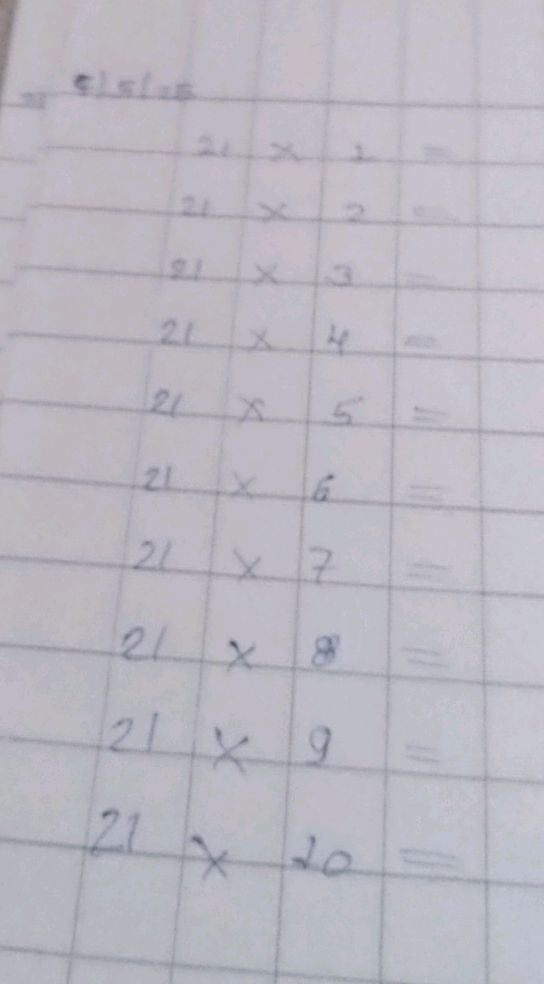 21 × 1 =
21 × 2 =
21 × 3 =
21 × 4 =
21 × 5 =
21 × 6 =
21 × 7 =
21 × 8 =
21 × 9 =
21 × 10 =